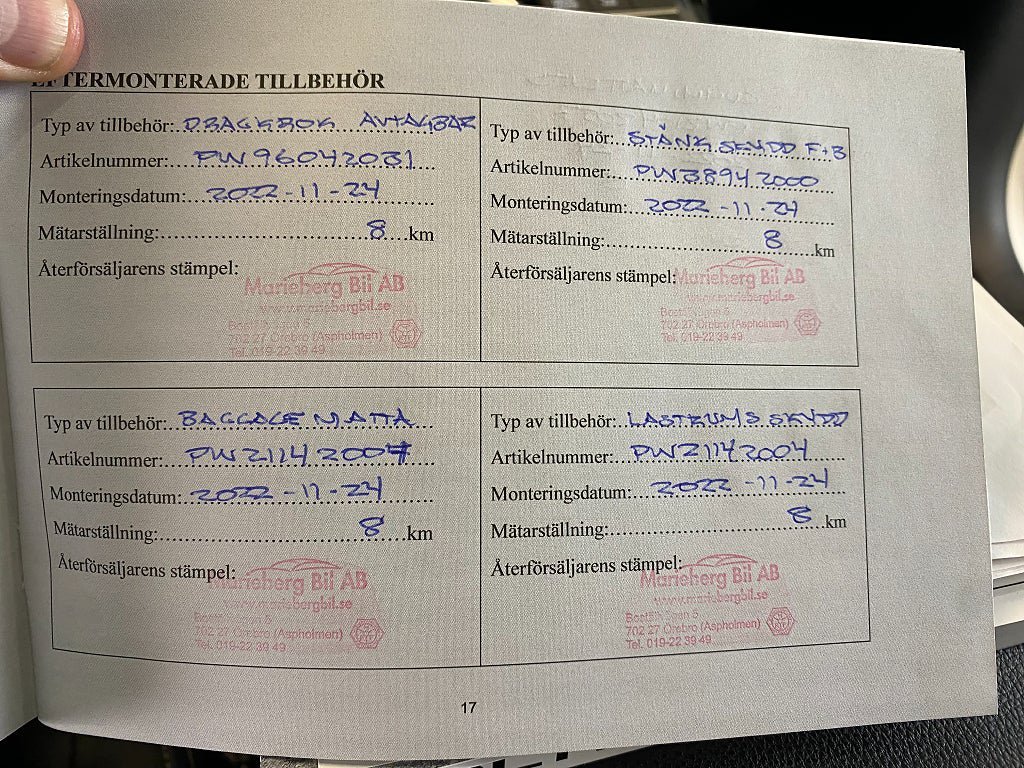 EFTERMONTERADE TILLBEHÖR
Typ av tillbehör: DRAGKROK AVTAGBAR
Artikelnummer: PW96042031
Monteringsdatum: 2022-11-24
Mätarställning: 8 km
Återförsäljarens stämpel:
Marieberg Bil AB
www.mariebergbil.se
702 27 Örebro (Aspholmen)
Tel. 019-22 39 49
Typ av tillbehör: STÄNKSKYDD F+B
Artikelnummer: PW38942000
Monteringsdatum: 2022-11-24
Mätarställning: 8 km
Återförsäljarens stämpel:
Marieberg Bil AB
www.mariebergbil.se
702 27 Örebro (Aspholmen)
Tel. 019-22 39 49
Typ av tillbehör: BAGGAGE MATTA
Artikelnummer: PW21142004
Monteringsdatum: 2022-11-24
Mätarställning: 8 km
Återförsäljarens stämpel:
Marieberg Bil AB
www.mariebergbil.se
702 27 Örebro (Aspholmen)
Tel. 019-22 39 49
Typ av tillbehör: LASTRUMSSKYDD
Artikelnummer: PW21142004
Monteringsdatum: 2022-11-24
Mätarställning: 8 km
Återförsäljarens stämpel:
Marieberg Bil AB
www.mariebergbil.se
702 27 Örebro (Aspholmen)
Tel. 019-22 39 49
17